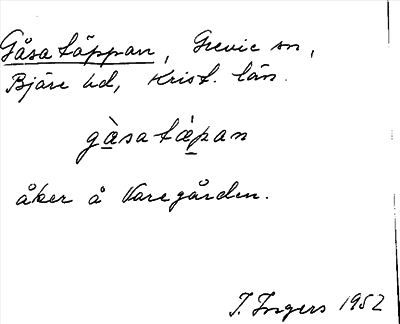 Gåsatäppan, Grevie sn,
Bjäre hd, Krist. län.
gàsatápan
åker å Varegården.
I. Ingers 1952